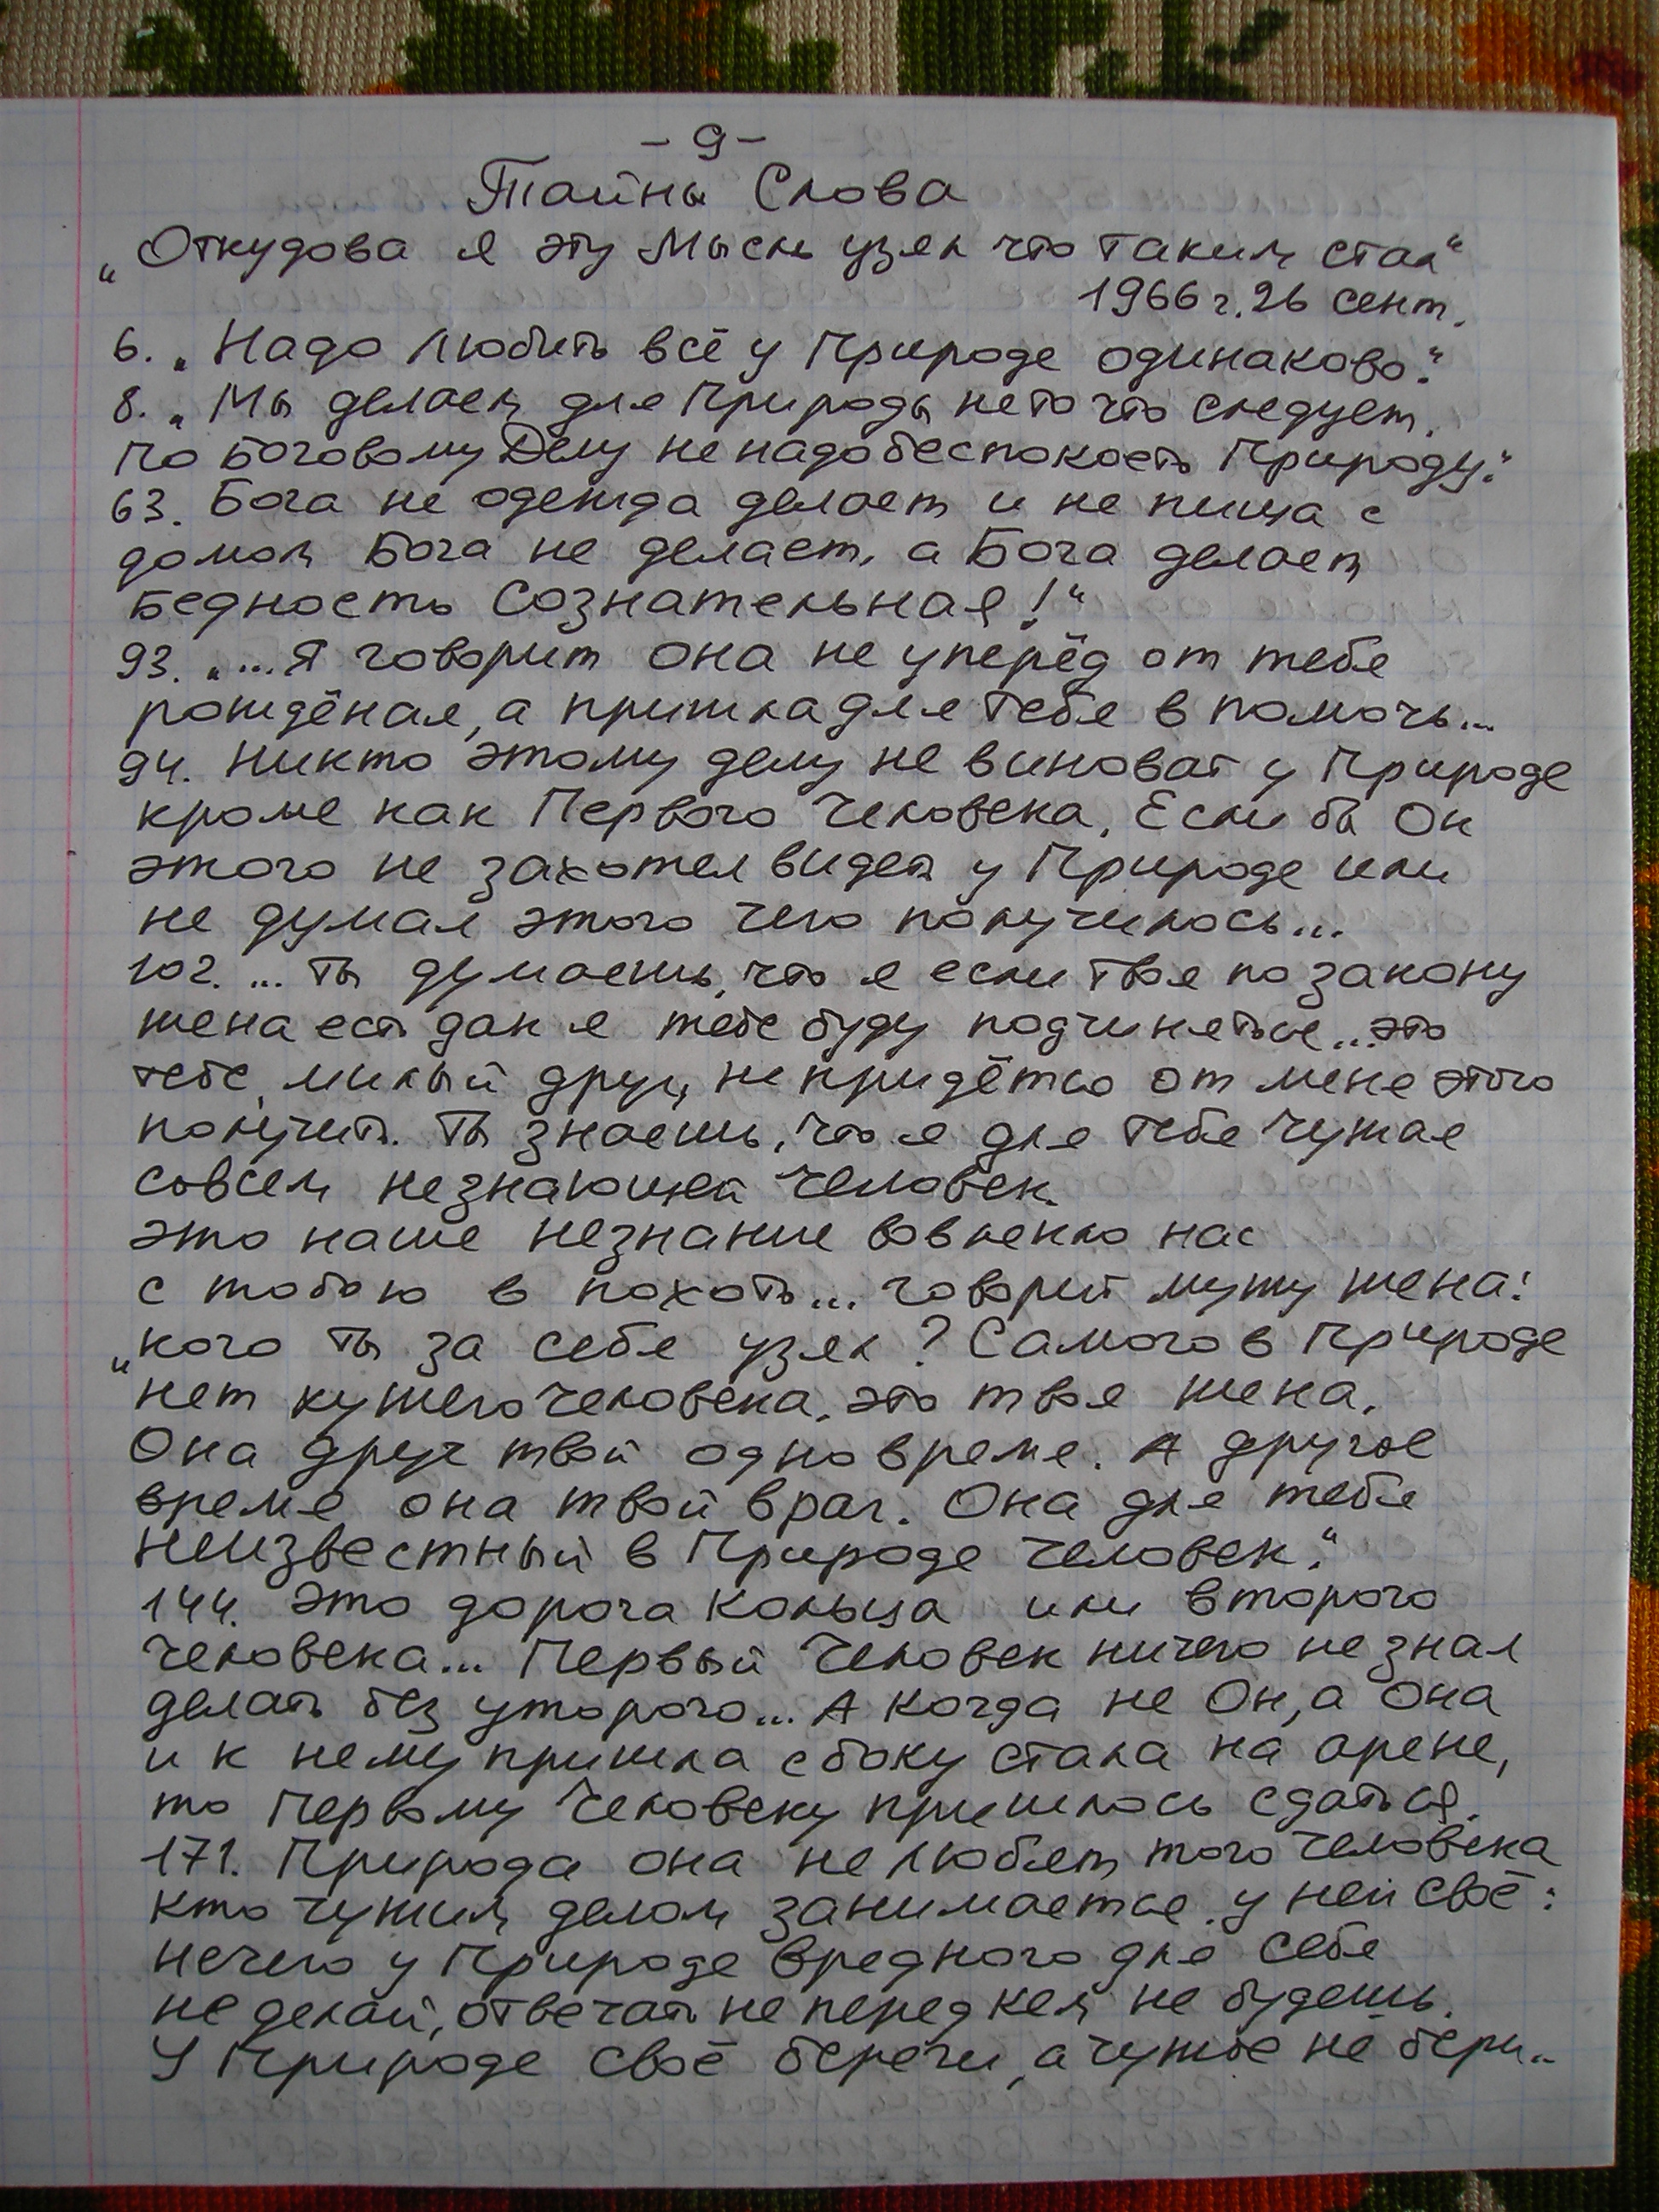 - 9 -
Тайны Слова
„Откудова я эту Мысль узял что таким стал“
1966 г. 26 сент.
6. „Надо Любить всё у Природе одинаково.“
8. „Мы делаем для Природы не то что следует.
По Боговому Делу не надо беспокоеть Природу.“
63. Бога не одежда делает и не пища с
домом Бога не делает, а Бога делает
Бедность Сознательная!“
93. „... Я говорит она не уперёд от тебя
рождёная, а пришла для тебя в помочь...
94. Никто этому делу не виноват у Природе
кроме как Первого Человека. Если бы Он
этого не захотел видеть у Природе или
не думал этого чего получилось...
102. ... Ты думаешь, что я если твоя по закону
жена есть дак я тебе буду подчиняться... это
тебе, милый друг, не придётся от меня этого
получить. Ты знаешь, что я для тебя чужая
совсем незнающей человек.
это наше незнание вовлекло нас
с тобою в похоть... говорит мужу жена:
„кого ты за себя узял? Самого в Природе
нет хужего человека, это твоя жена.
Она друг твой одно время. А другое
время она твой враг. Она для тебя
Неизвестный в Природе человек.“
144. Это дорога Кольца или второго
человека... Первый Человек ничего не знал
делать без уторого... А когда не Он, а она
и к нему пришла сбоку стала на арене,
то Первому Человеку пришлось сдаться.
171. Природа она не любит того человека
кто чужим делом занимается. у ней своё:
нечего у Природе вредного для себя
не делай, отвечать не перед кем не будешь.
У Природе своё береги, а чужое не бери..